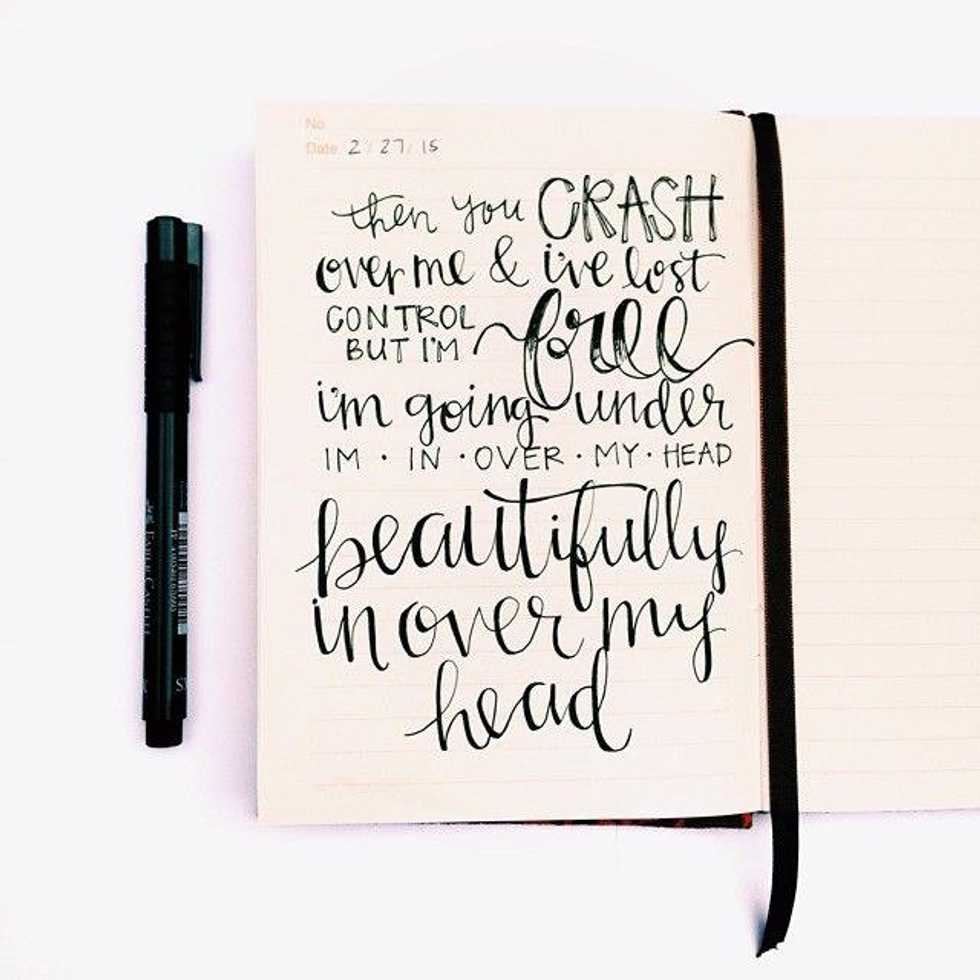 No.
Date 2 / 27 / 15
then you CRASH
over me & i've lost
CONTROL
BUT I'M free
i'm going under
IM · IN · OVER · MY · HEAD
beautifully
in over my
head
FABER-CASTELL